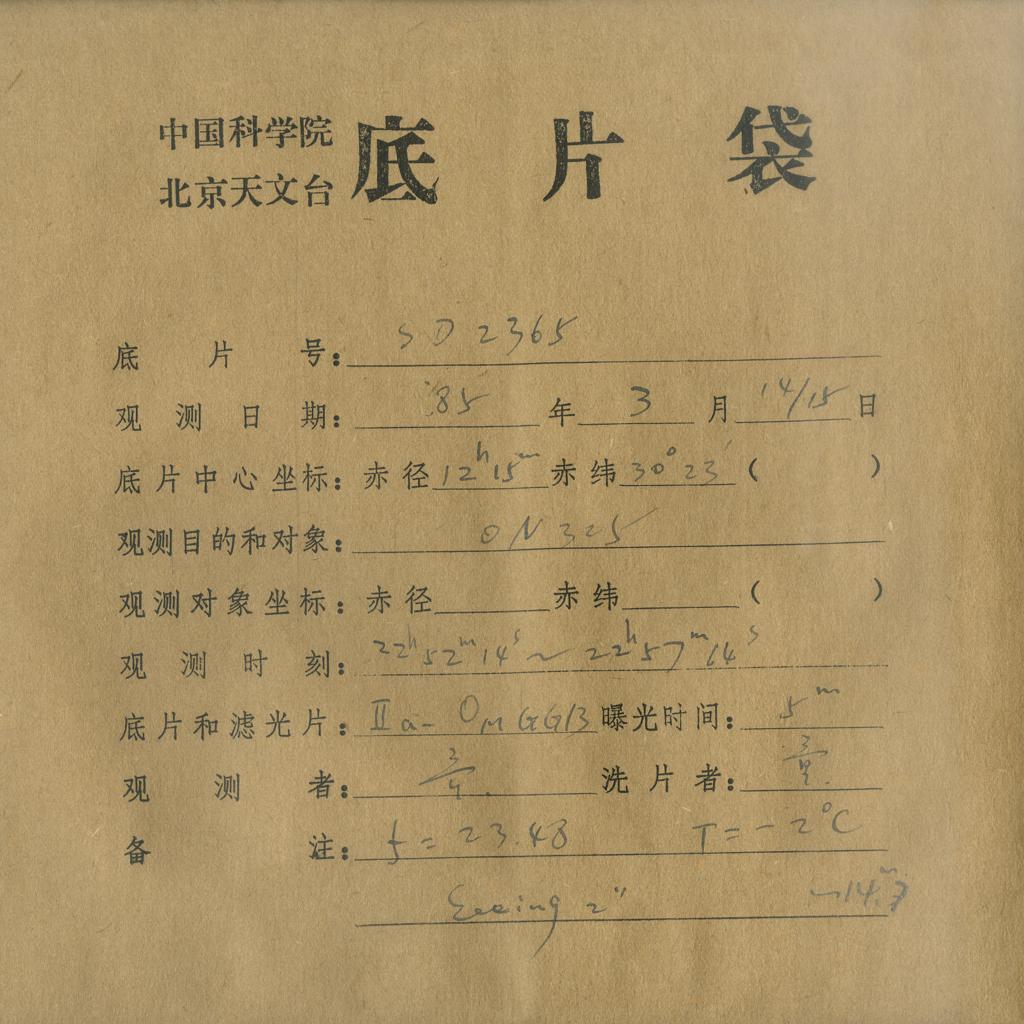 中国科学院
北京天文台
底片袋
底片号: SD 2365
观测日期: 85 年 3 月 14/15 日
底片中心坐标: 赤径 12h 15m 赤纬 30° 23′ ( )
观测目的和对象: ON 325
观测对象坐标: 赤径 赤纬 ( )
观测时刻: 22h 52m 14s ~ 22h 57m 14s
底片和滤光片: IIa-O GG13 曝光时间: 5m
观测者: 洗片者:
备注: f = 23.48 T = -2°C
Seeing 2"